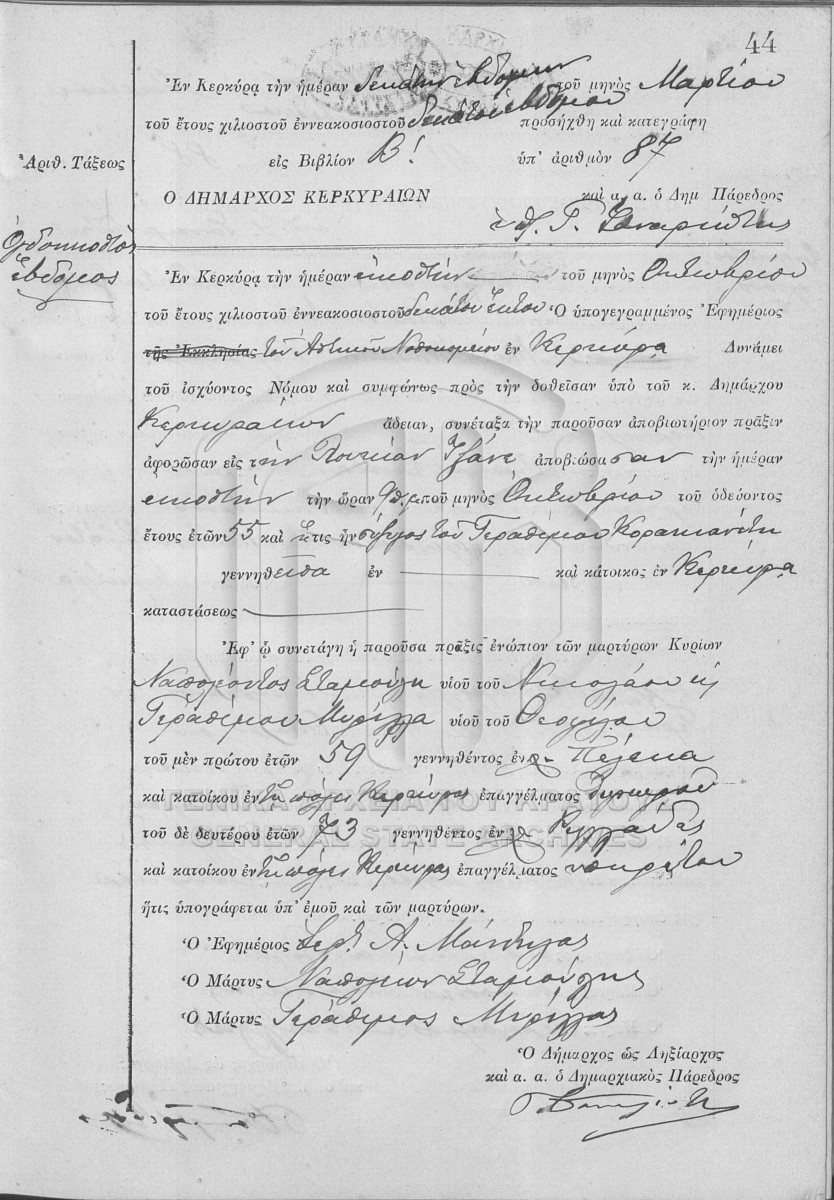 44
Ἐν Κερκύρᾳ τὴν ἡμέραν δεκάτην ἑβδόμην τοῦ μηνὸς Μαρτίου
τοῦ ἔτους χιλιοστοῦ ἐννεακοσιοστοῦ δεκάτου ἑβδόμου προσήχθη καὶ κατεγράφη
Ἀριθ. Τάξεως
εἰς Βιβλίον Β! ὑπ' ἀριθμὸν 87
Ο ΔΗΜΑΡΧΟΣ ΚΕΡΚΥΡΑΙΩΝ καὶ α. α. ὁ Δημ Πάρεδρος
Ὀγδοηκοστὸς
Ἕβδομος
Ἐν Κερκύρᾳ τὴν ἡμέραν εἰκοστὴν τοῦ μηνὸς Ὀκτωβρίου
τοῦ ἔτους χιλιοστοῦ ἐννεακοσιοστοῦ δεκάτου ἕκτου Ὁ ὑπογεγραμμένος Ἐφημέριος
τῆς Ἐκκλησίας τοῦ Ἀστικοῦ Νοσοκομείου ἐν Κερκύρᾳ Δυνάμει
τοῦ ἰσχύοντος Νόμου καὶ συμφώνως πρὸς τὴν δοθεῖσαν ὑπὸ τοῦ κ. Δημάρχου
Κερκυραίων ἄδειαν, συνέταξα τὴν παροῦσαν ἀποβιωτήριον πρᾶξιν
ἀφορῶσαν εἰς τὴν Λουκίαν Τζάνε ἀποβιώσασαν τὴν ἡμέραν
εἰκοστὴν τὴν ὥραν 9 π.μ. τοῦ μηνὸς Ὀκτωβρίου τοῦ ὁδεύοντος
ἔτους ἐτῶν 55 καὶ ἥτις ἦν σύζυγος τοῦ Γερασίμου Κορακιανίτη
γεννηθεῖσα ἐν καὶ κάτοικος ἐν Κερκύρᾳ
καταστάσεως
Ἐφ' ᾧ συνετάγη ἡ παροῦσα πρᾶξις ἐνώπιον τῶν μαρτύρων Κυρίων
Ναπολέοντος Σταμούλη υἱοῦ τοῦ Νικολάου κ
Γερασίμου Μυρίλλα υἱοῦ τοῦ Θεοφίλου
τοῦ μὲν πρώτου ἐτῶν 59 γεννηθέντος ἐν Πέλεκα
καὶ κατοίκου ἐν τῇ πόλει Κερκύρας ἐπαγγέλματος
ΓΕΝΙΚΑ ΑΡΧΕΙΑ ΤΟΥ ΚΡΑΤΟΥΣ
τοῦ δὲ δευτέρου ἐτῶν 73 γεννηθέντος ἐν
GENERAL STATE ARCHIVES
καὶ κατοίκου ἐν τῇ πόλει Κερκύρας ἐπαγγέλματος ὑπηρέτου
ἥτις ὑπογράφεται ὑπ' ἐμοῦ καὶ τῶν μαρτύρων.
Ὁ Ἐφημέριος Α. Μάνδηλας
Ὁ Μάρτυς Ναπολέων Σταμούλης
Ὁ Μάρτυς Γεράσιμος Μυρίλλας
Ὁ Δήμαρχος ὡς Ληξίαρχος
καὶ α. α. ὁ Δημαρχιακὸς Πάρεδρος